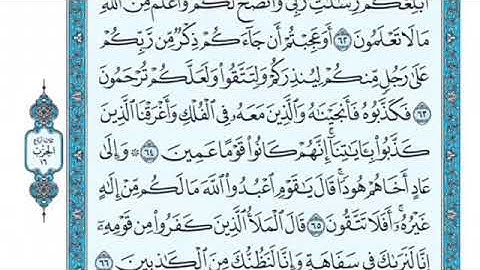 أُبَلِّغُكُمْ رِسَٰلَٰتِ رَبِّى وَأَنصَحُ لَكُمْ وَأَعْلَمُ مِنَ ٱللَّهِ
مَا لَا تَعْلَمُونَ ٦٢ أَوَعَجِبْتُمْ أَن جَآءَكُمْ ذِكْرٌ مِّن رَّبِّكُمْ
عَلَىٰ رَجُلٍ مِّنكُمْ لِيُنذِرَكُمْ وَلِتَتَّقُوا۟ وَلَعَلَّكُمْ تُرْحَمُونَ
٦٣ فَكَذَّبُوهُ فَأَنجَيْنَٰهُ وَٱلَّذِينَ مَعَهُۥ فِى ٱلْفُلْكِ وَأَغْرَقْنَا ٱلَّذِينَ
كَذَّبُوا۟ بِـَٔايَٰتِنَآ ۚ إِنَّهُمْ كَانُوا۟ قَوْمًا عَمِينَ ٦٤ ۞ وَإِلَىٰ
عَادٍ أَخَاهُمْ هُودًا ۗ قَالَ يَٰقَوْمِ ٱعْبُدُوا۟ ٱللَّهَ مَا لَكُم مِّنْ إِلَٰهٍ
غَيْرُهُۥٓ ۚ أَفَلَا تَتَّقُونَ ٦٥ قَالَ ٱلْمَلَأُ ٱلَّذِينَ كَفَرُوا۟ مِن قَوْمِهِۦٓ
إِنَّا لَنَرَىٰكَ فِى سَفَاهَةٍ وَإِنَّا لَنَظُنُّكَ مِنَ ٱلْكَٰذِبِينَ ٦٦
الحزب
١٦